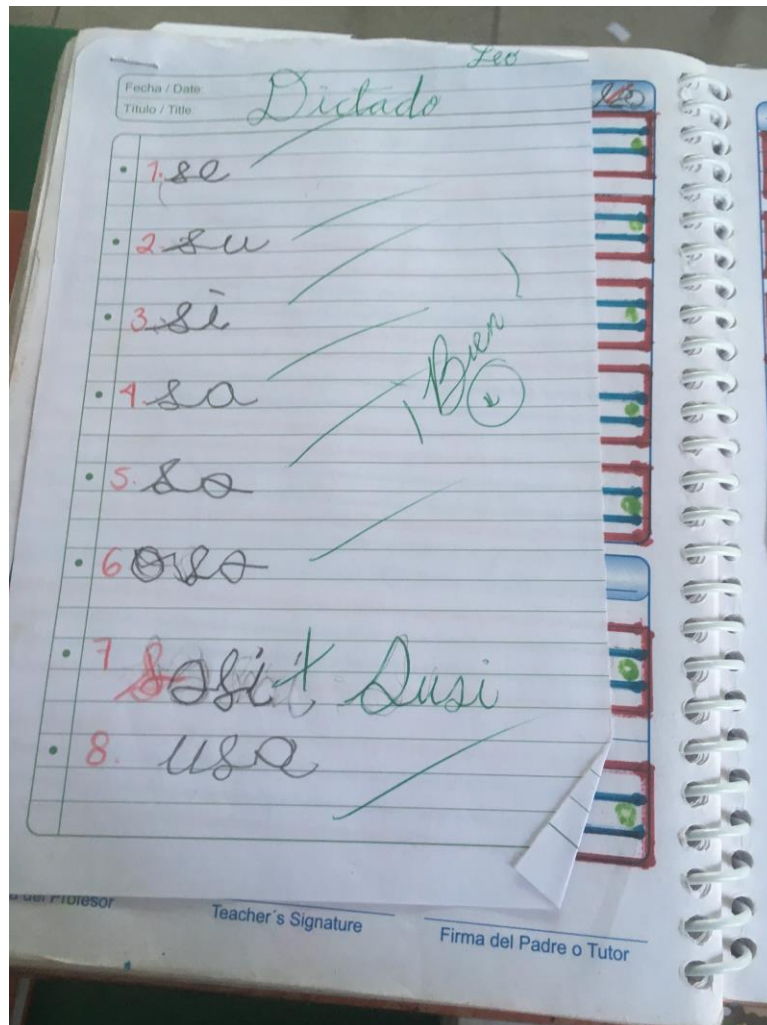 Leo
Fecha / Date
Título / Title
Dictado
1. se
2 su
3. si
4. sa
5. so
6 oso
7 Sosi Susi
8. usa
¡Bien!
Teacher´s Signature
Firma del Padre o Tutor